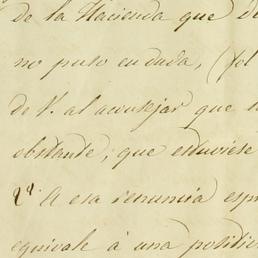 de la Hacienda que de
no puso en duda, (fol
de V. al aconsejar que
obstante; que estuviese
2ª A esa renuncia esp
equivale à una positiv